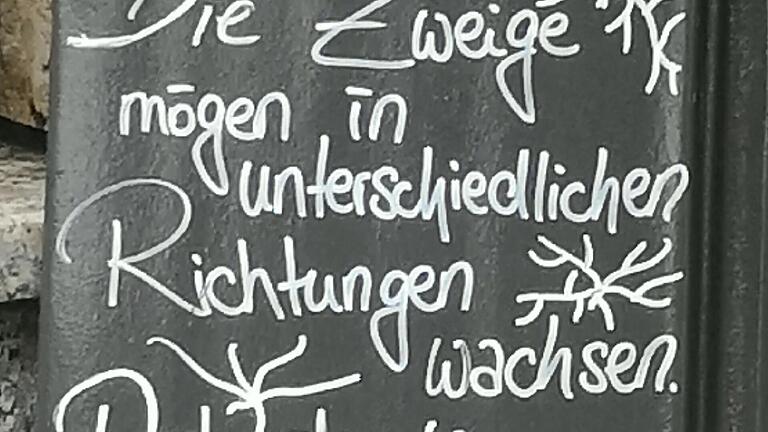 Die Zweige
mögen in
unterschiedlichen
Richtungen
wachsen.